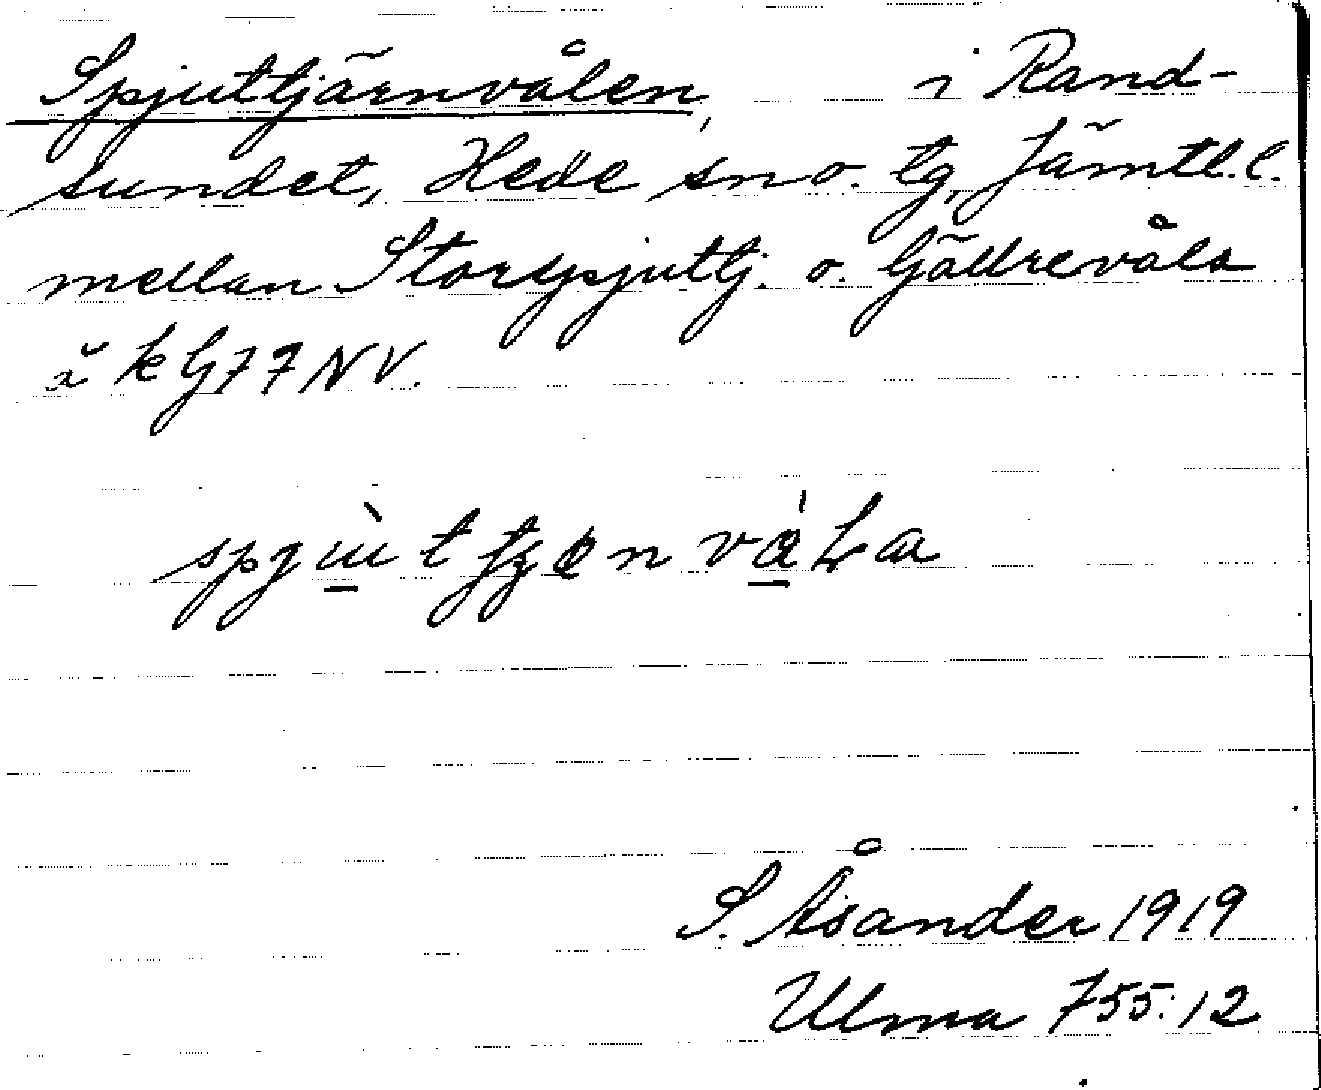 Spjuttjärnvålen, i Rand-
sundet, Hede sn o. tg, Jämtl. l.
mellan Storspjuttj. o. Gällrevåla
ä k G 77 NV.
S. Åsander 1919
Ulma 755:12